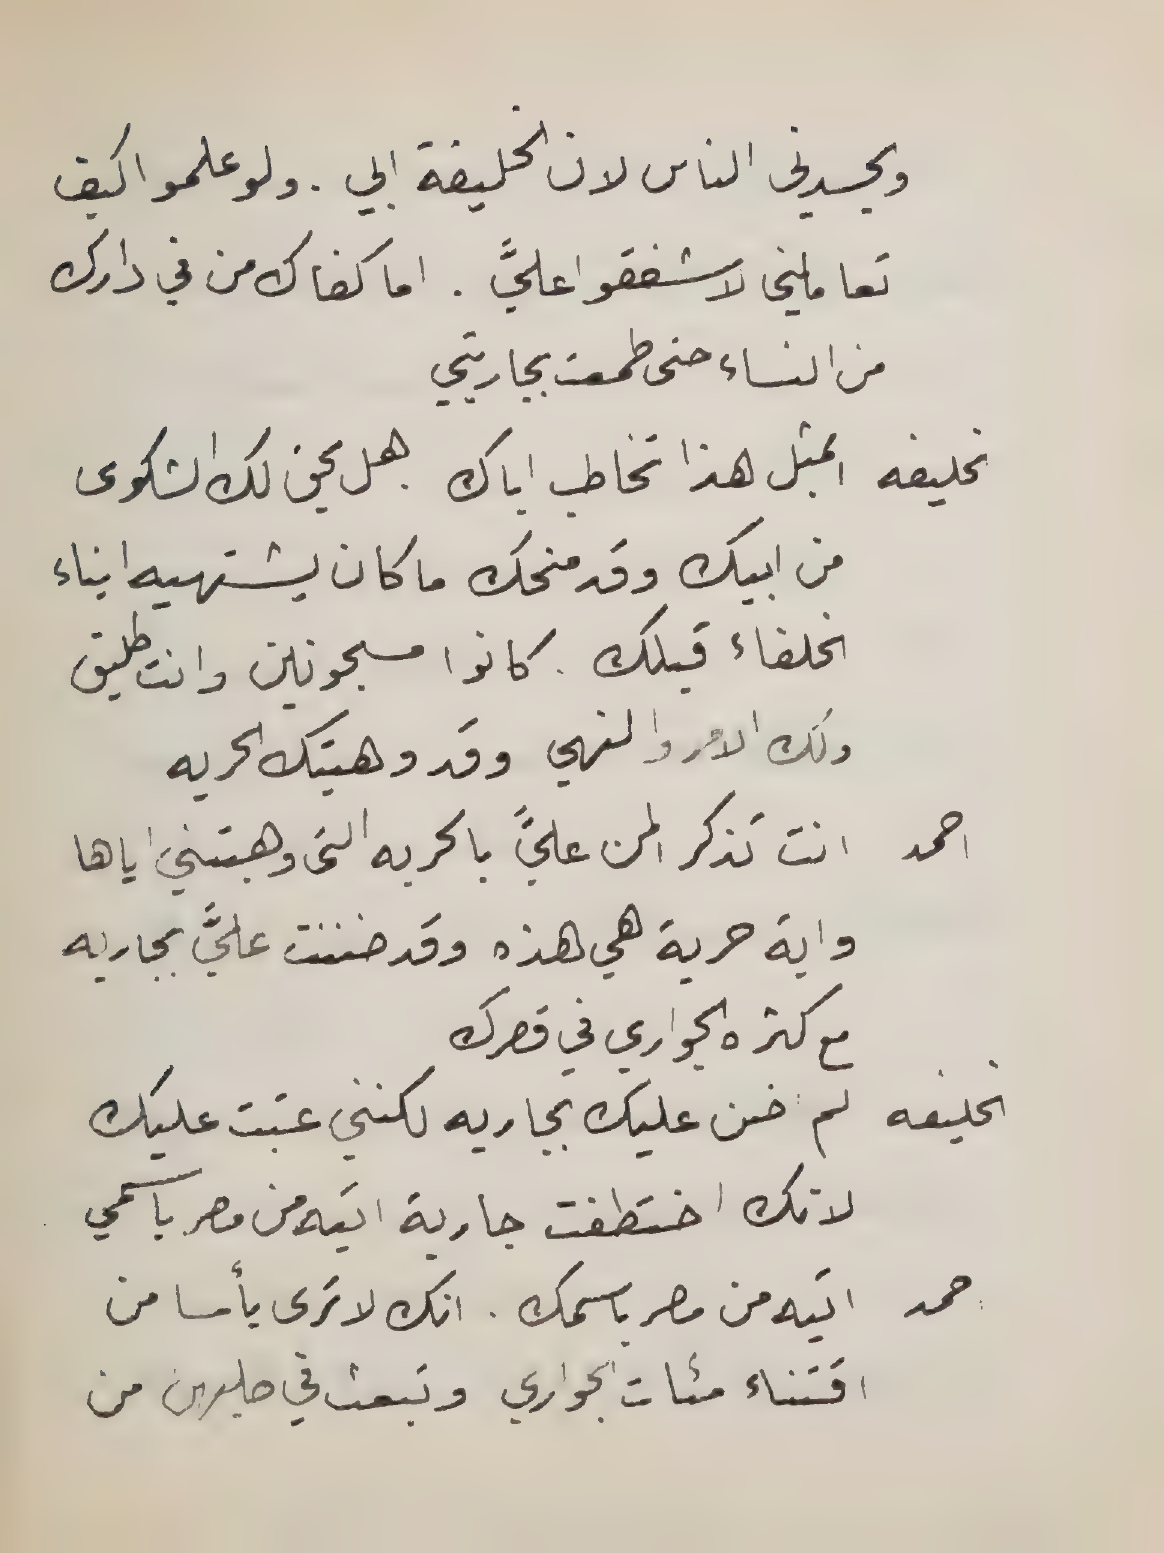 ويحسدني الناس لان الخليفة ابي . ولو علموا كيف
تعاملني لاشفقوا عليَّ . اما كفاك من في دارك
من النساء حتى طمعت بجاريتي
خليفه ابمثل هذا تخاطب اباك . هل يحق لك الشكوى
من ابيك وقد منحك ما كان يشتهيه ابناء
الخلفاء قبلك . كانوا مسجونين وانت طليق
ولك الامر والنهي وقد وهبتك الحريه
احمد انت تذكر المن عليَّ بالحريه التي وهبتني اياها
واية حرية هي هذه وقد ضننت عليَّ بجاريه
مع كثره الجواري في قصرك
الخليفه لم اضن عليك بجاريه لكنني عتبت عليك
لانك اختطفت جارية اتيه من مصر باسمي
احمد اتيه من مصر باسمك . انك لا ترى بأسا من
اقتناء مئات الجواري وتبعث في من